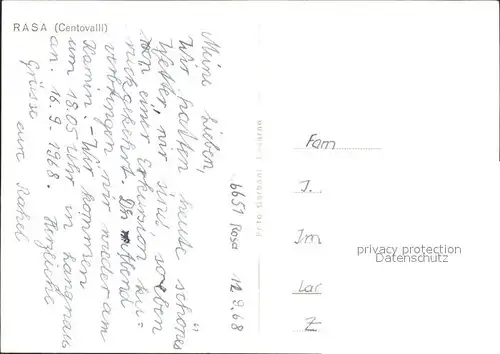 RASA (Centovalli)
6651 Rasa 12.9.68
Meine Lieben,
Wir hatten heute schönes
Wetter, wir sind soeben
von einer Exkursion zu=
rückgekehrt. Den Abend
verbringen wir wieder am
Kamin. - Wir kommen
um 18.05 Uhr in Langnau
an. 16.9.1968. Herzliche
Grüsse
eure Rahel
Foto Garbani, Locarno
Fam
J.
Im
Lar
Z
privacy protection
Datenschutz